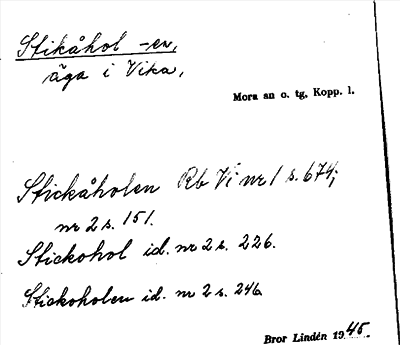 Stikåhol -en,
äga i Vika,
Mora an o. tg, Kopp. l.
Stickåholen Rb Vi nr 1 s. 674;
nr 2 s. 151.
Stickohol id. nr 2 s. 226.
Stickoholen id. nr 2 s. 246
Bror Lindén 1945